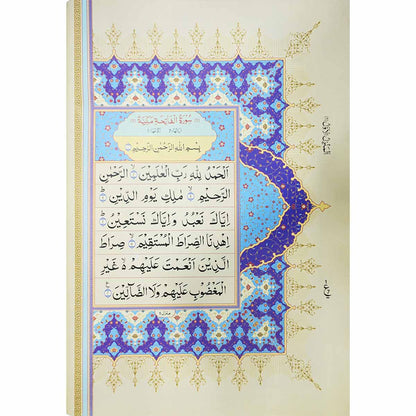 سُورَةُ الْفَاتِحَةِ مَكِّيَّةٌ
بِسْمِ اللهِ الرَّحْمٰنِ الرَّحِيْمِ
اَلْحَمْدُ لِلّٰهِ رَبِّ الْعٰلَمِيْنَ ۙ الرَّحْمٰنِ
الرَّحِيْمِ ۙ مٰلِكِ يَوْمِ الدِّيْنِ ؕ
اِيَّاكَ نَعْبُدُ وَاِيَّاكَ نَسْتَعِيْنُ ؕ
اِهْدِنَا الصِّرَاطَ الْمُسْتَقِيْمَ ۙ صِرَاطَ
الَّذِيْنَ اَنْعَمْتَ عَلَيْهِمْ ۙ غَيْرِ
الْمَغْضُوْبِ عَلَيْهِمْ وَلَا الضَّآلِّيْنَ